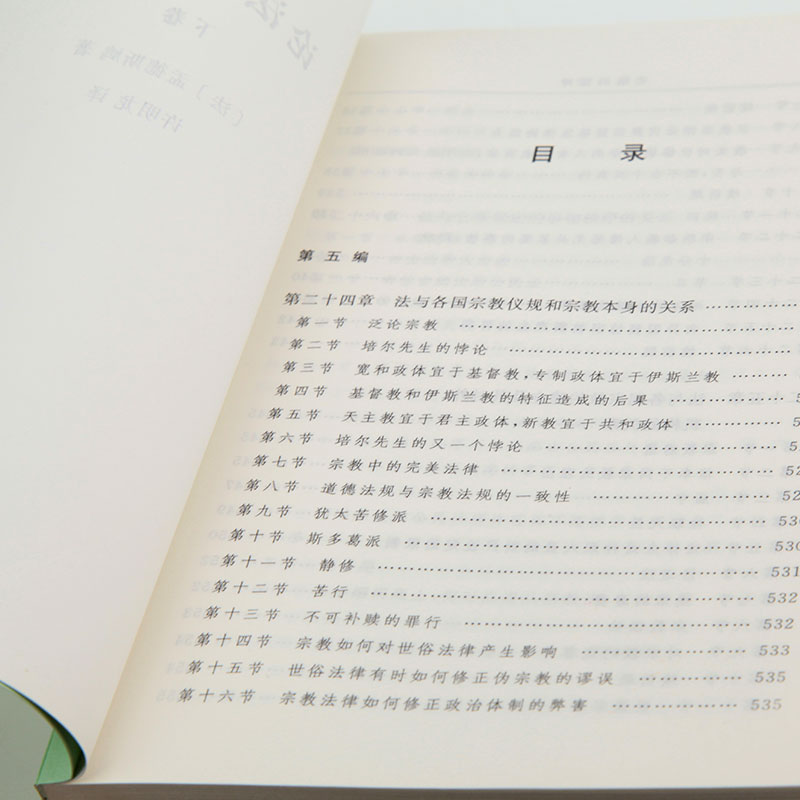 目 录
第五编
第二十四章 法与各国宗教仪规和宗教本身的关系
第一节 泛论宗教
第二节 培尔先生的悖论
第三节 宽和政体宜于基督教，专制政体宜于伊斯兰教
第四节 基督教和伊斯兰教的特征造成的后果
第五节 天主教宜于君主政体，新教宜于共和政体
第六节 培尔先生的又一个悖论
第七节 宗教中的完美法律
第八节 道德法规与宗教法规的一致性
第九节 犹太苦修派
第十节 斯多葛派 530
第十一节 静修 531
第十二节 苦行 532
第十三节 不可补赎的罪行 532
第十四节 宗教如何对世俗法律产生影响 533
第十五节 世俗法律有时如何修正伪宗教的谬误 535
第十六节 宗教法律如何修正政治体制的弊害 535